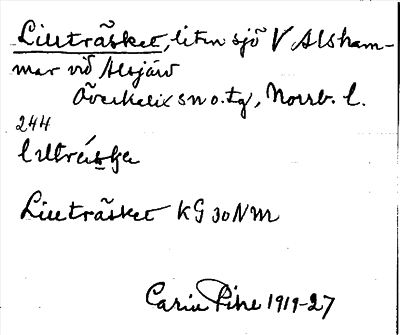 Lillträsket, liten sjö V Alsham-
mar vid Alsjärv
Överkalix sn o. tg, Norrb. l.
244
lıltrǻska
Lillträsket KG 30 NM
Carin Pihl 1919-27